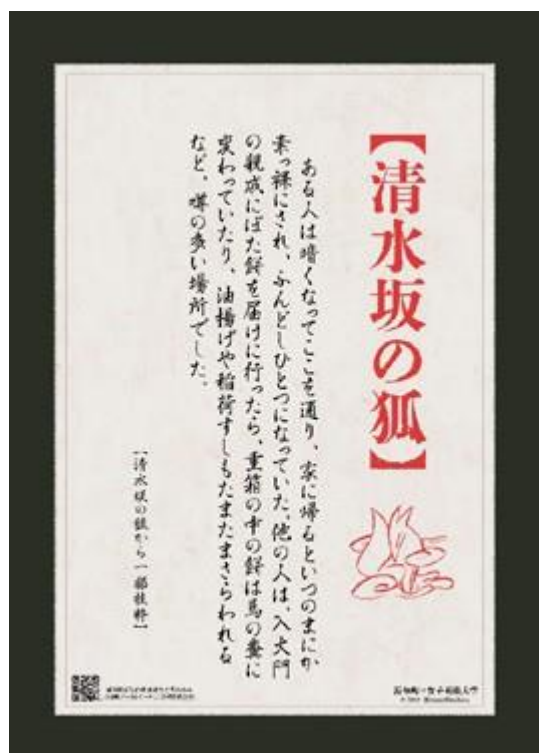 【清水坂の狐】
ある人は暗くなってここを通り、家に帰るといつのまにか
素っ裸にされ、ふんどしひとつになっていた。他の人は、入大門
の親戚にぼた餅を届けに行ったら、重箱の中の餅は馬の糞に
変わっていたり、油揚げや稲荷すしもたまたまさらわれる
など、噂の多い場所でした。
【清水坂の狐から一部抜粋】